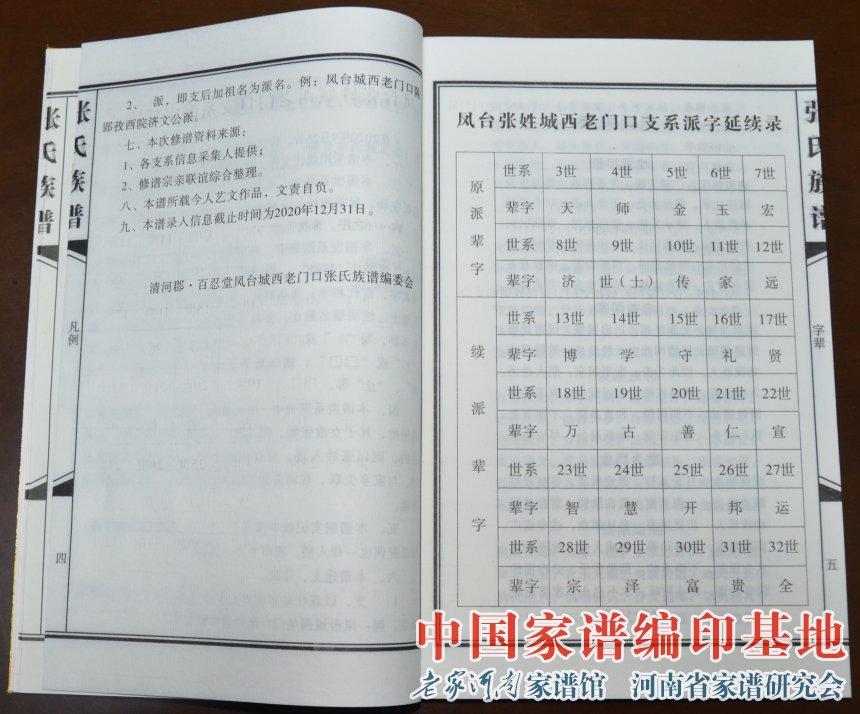 张氏族谱
张氏族谱
凡例
四
2、派，即支后加祖名为派名。例：凤台城西老门口
郢孜西院济文公派。
七、本次修谱资料来源：
1、各支系信息采集人提供；
2、修谱宗亲联谊综合整理。
八、本谱所载今人艺文作品，文责自负。
九、本谱录入信息截止时间为2020年12月31日。
清河郡·百忍堂凤台城西老门口张氏族谱编委会
凤台张姓城西老门口支系派字延续录
原派辈字
世系 3世 4世 5世 6世 7世
辈字 天 师 金 玉 宏
世系 8世 9世 10世 11世 12世
辈字 济 世（士） 传 家 远
续派辈字
世系 13世 14世 15世 16世 17世
辈字 博 学 守 礼 贤
世系 18世 19世 20世 21世 22世
辈字 万 古 善 仁 宣
世系 23世 24世 25世 26世 27世
辈字 智 慧 开 邦 运
世系 28世 29世 30世 31世 32世
辈字 宗 泽 富 贵 全
张氏族谱
字辈
五
中国家谱编印基地
老家河南家谱馆 河南省家谱研究会